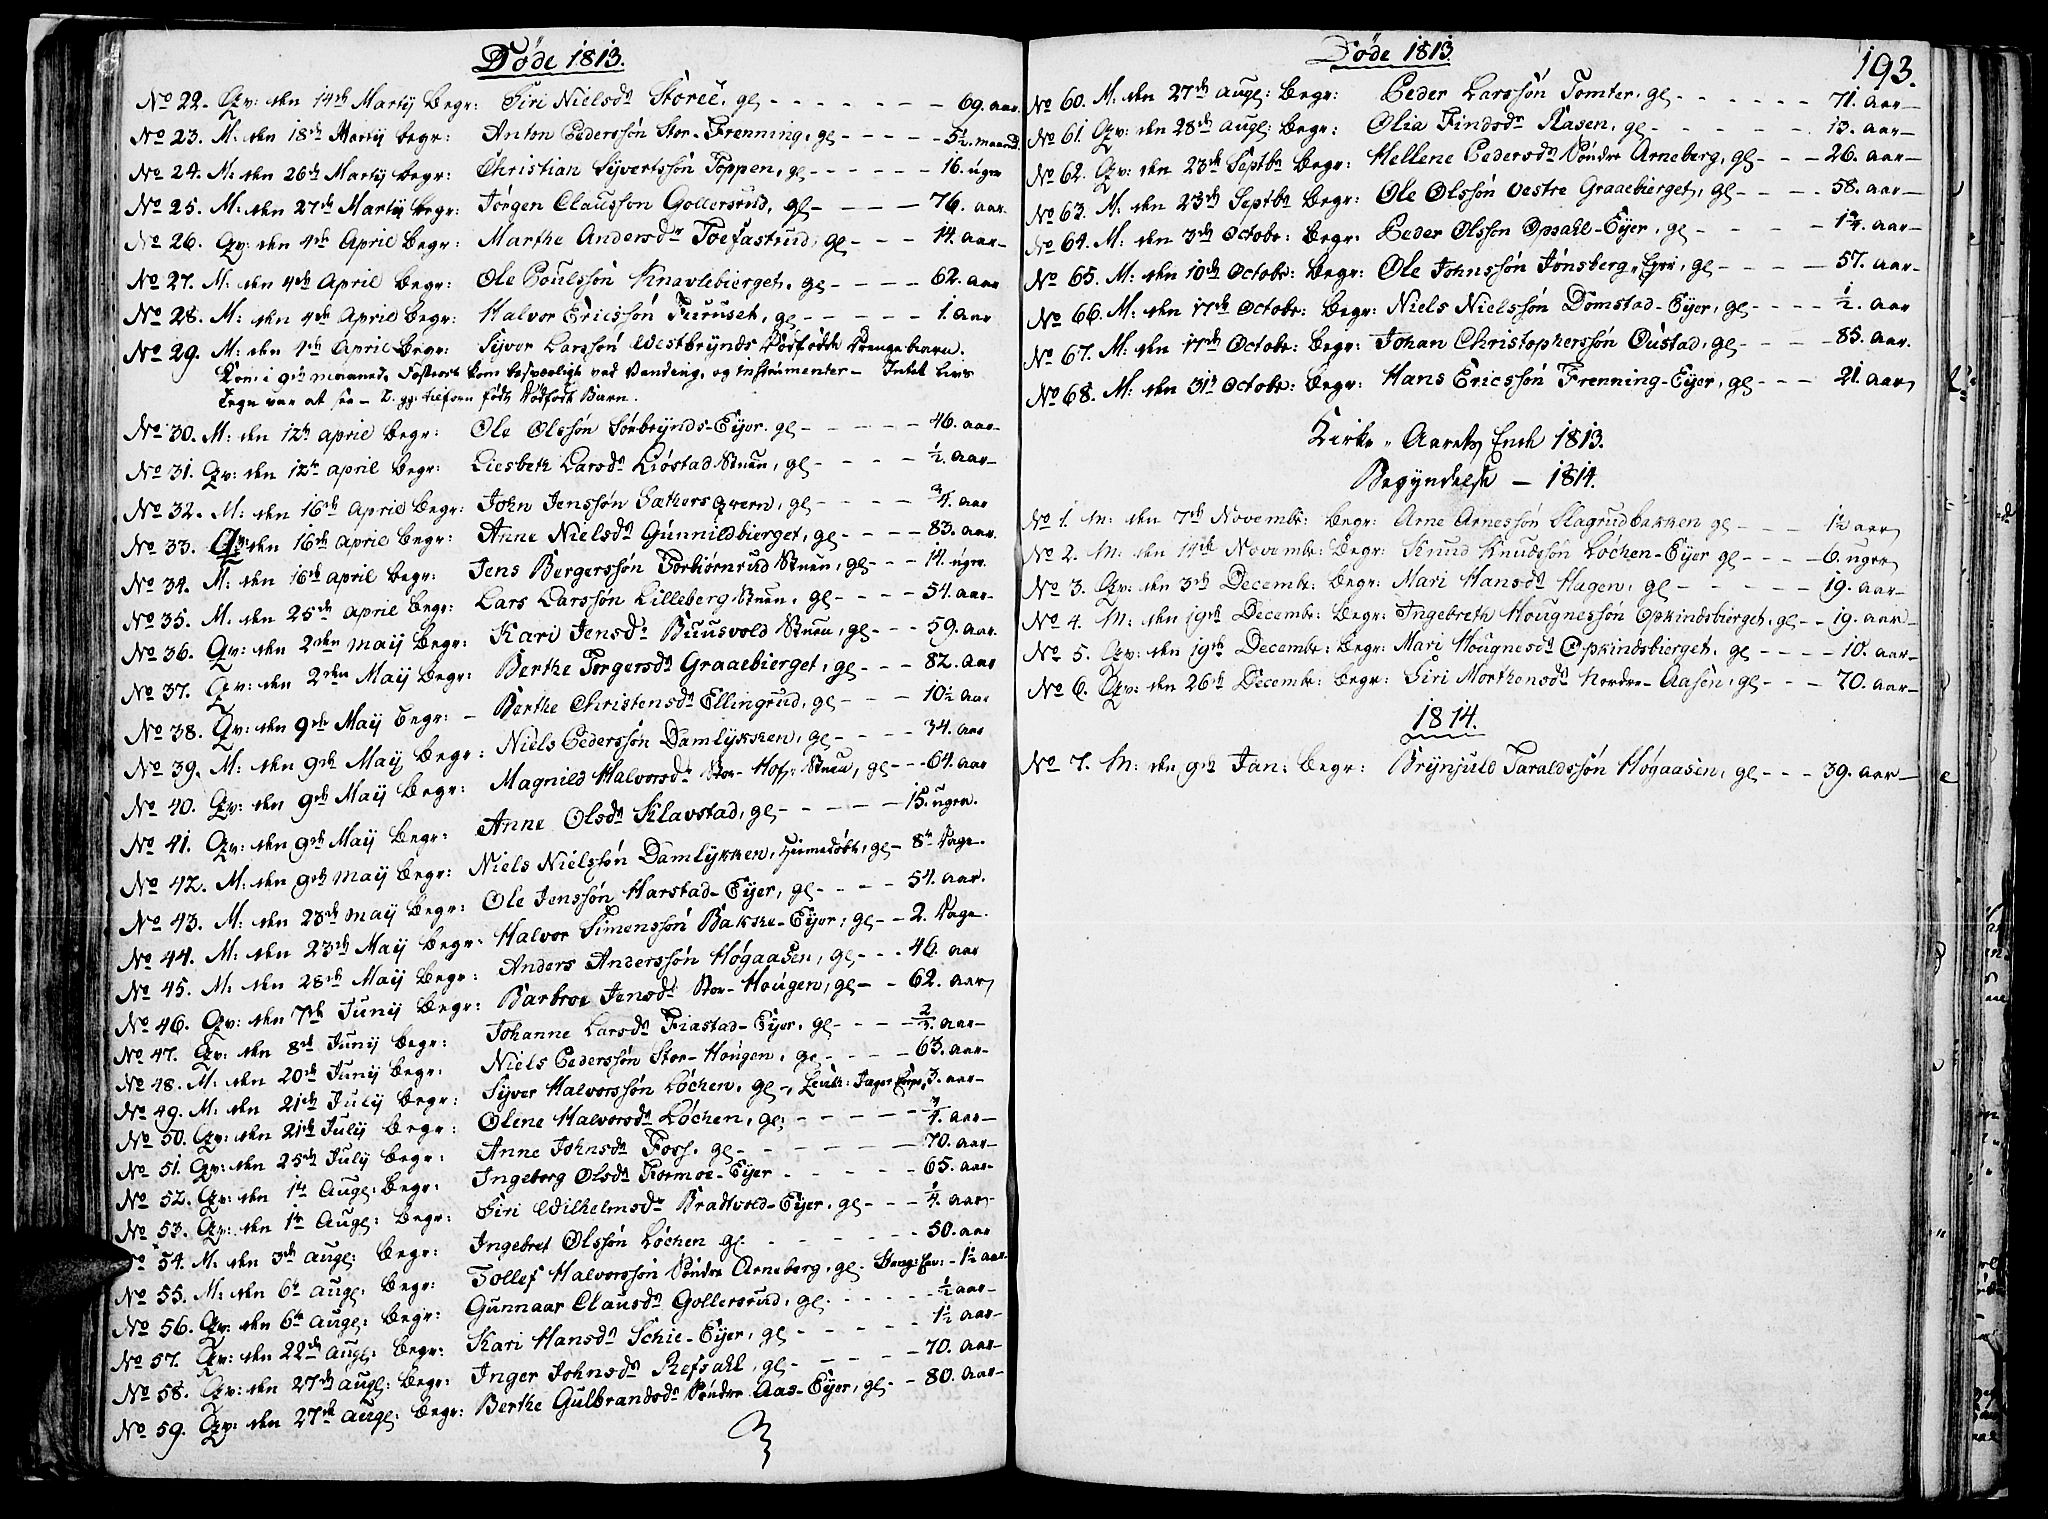 Døde 1813.
No 22. Qv: den 14de Martij Begr: Siri Nielsdr Storee, gl - - - 69. aar.
No 23. M: den 18de Martij begr: Anton Pederssön Stor-Frenning, gl - - - 5½. maaned.
No 24. M: den 26de Martij begr: Christian Syvertssön Toppen, gl - - - 16. uger
No 25. M: den 27de Martij begr: Jörgen Claussson Gollersrud, gl - - - 76. aar.
No 26. Qv: den 4de April Begr: Marthe Andersdr Toefastrud, gl - - - 14. aar-
No 27. M: den 4de April begr: Ole Poulssön Knavlebierget. gl - - - 62. aar
No 28. M: den 4de April Begr: Halvor Ericssön Furuset, gl - - - 1. aar
No 29. M: den 1ste April Begr: Syver Larssön Westbrynds Dödfödte Drengebarn.
Kom i 9de maaned, Fosteret kom besværligt ved Vending, og instrumenter - Intet livs
Tegn var at see - 2 gg: tilforn födt Dödfödt Barn.
No 30. M: den 12te april Begr: Ole Olssön Sörbrynds-Eyer. gl - - - 46. aar-
No 31. Qv: den 12te april begr: Liesbeth Larsdr Liöstad Stuen, gl - - - ½. aar-
No 32. M: den 16de april Begr: John Jenssön Sæthersqvern, gl - - - ¾. aar
No 33. Qv: den 16de April Begr: Anne Nielsdr Gunnildbierget, gl - - - 83. aar.
No 34. M: den 16de april Begr: Jens Bergerssön Torbiörnrud Stuen, gl - - - 14. uger.
No 35. M: den 25de April Begr: Lars Larssön Lilleberg Stuen. gl - - - 54. aar-
No 36. Qv: den 2den maij Begr: Kari Jensdr Buusvold Stuen, gl - - - 59. aar.
No 37. Qv: den 2den Maij Begr: Berthe Torgersdr Graaebierget, gl - - - 82. aar
No 38. Qv: den 9de Maij Begr: - Berthe Christensdr Ellingrud, gl - - - 10½ aar
No 39. M: den 9de Maij Begr: Niels Pederssön Damlykken, gl - - - 34. aar
No 40. Qv: den 9de Maij Begr: Magnild Halvorsdr Stor-Hofs-Stuen, gl - - - 64. aar
No 41. Qv: den 9de Maij Begr: Anne Olsdr Klavstad, gl - - - 15. uger.
No 42. M: den 9de maij Begr: Niels Nielssön Damlykken, Hiemedöbt, gl - 8te Dage.
No 43. M: den 23de maij Begr: Ole Jenssön Harstad-Eyer, gl - - - 54. aar.
No 44. M: den 23de Maij Begr: Halvor Simenssön Bakke-Eyer, gl - - 2. Dage.
No 45. M: den 28de Maij Begr: Anders Anderssön Högaasen, gl - - - 46. aar
No 46. Qv: den 7de Junij Begr: Barbroe Jensdr Stor-Hougen, gl - - 62. aar,
No 47. Qv: den 8de Junij Begr: Johanne Larsdr Fiastad-Eyer. gl - - - ⅔. aar-
No 48. M: den 20de Junij Begr: Niels Pederssön Stor-Hougen, gl - - - 63. aar-
No 49. M: den 21de Julij Begr: Syver Halvorssön Löchen. gl -, Leuth: Jæger Corps, 3. aar-
No 50. Qv: den 21de Julij Begr: Olene Halvorsdr Löchen, gl; - - - ¾. aar-
No 51. Qv: den 25de Julij Begr: Anne Johnsdr Foss. gl - - - 70. aar-
No 52. Qv: den 1te Augs: Begr: Ingeborg Olsdr Kormoe-Eyer - - - 65. aar-
No 53. Qv: den 1te Augs: Begr: Siri Wilhelmsdr Bradtvold-Eyer. gl - - - ¼. aar,
No 54. M: den 3de augs: Begr: Ingebret Olssön Löchen gl - - - 50. aar
No 55. M: den 6te augs: Begr: Tollef Halvorssön Söndre Arneberg, gl. - 1½ aar.
No 56. Qv: den 6te augs: Begr: Gunnaar Clausdr Gollersrud, gl. - - - ½ aar-
No 57. Qv: den 22de augs: Begr: Kari Hansdr Schie-Eyer, gl - - - 1½ aar-
No 58. Qv: den 27de augs: Begr: Inger Johnsdr Refsahl, gl - - - 70. aar-
No 59. Qv: den 27de augs: begr: Berthe Gulbrandsdr Söndre Aas-Eyer, gl - - 80. aar-
Døde 1813.
193.
No 60. M: den 27de augs: Begr: Peder Larssön Tomter. gl - - - 71. aar-
No 61. Qv: den 28de augs: Begr: Olia Findsdr Aasen, gl - - - 13. aar-
No 62. Qv: den 23de Septbr Begr: Hellene Pedersdr Söndre Arneberg, gl - - - 26. aar-
No 63. M: den 23de Septbr Begr: Ole Olssön Vestre Graaebierget, gl - - - 58. aar-
No 64. M: den 3de Octobr: Begr: Peder Olsson Opsahl-Eyer, gl - - - 1¼. aar-
No 65. M: den 10de Octobr: Begr: Ole Johnssön Jönsberg-Eyer, gl - - - 57. aar-
No 66. M: den 17de Octobr: Begr: Niels Nielssön Domstad-Eyer, gl - - - ½. aar
No 67. M: den 17de Octobr: Begr: Johan Christopherssön Oustad, gl - - - 85. aar.
No 68. M: den 31te Octobr: Begr: Hans Ericssön Frenning-Eyer, gl - - - 21. aar,
Kirke-Aarets Ende 1813.
Begyndelse - 1814.
No 1. M: den 7de Novembr: Begr: Arne Arnessön Slagrudbakken gl - - - 1½ aar,
No 2. M: den 14de Novembr: Begr: Knud Knudssön Löchen-Eyer gl - - - 6. uger,
No 3. Qv: den 3de Decembr: Begr: Mari Hansdr Hagen, gl - - - 19. aar-
No 4. M: den 19de Decembr: Begr: Ingebreth Hougnessön Opkindsbierget, gl - - 19. aar-
No 5. Qv: den 19de Decembr: Begr: Mari Hougnesdr Opkindsbierget. gl - - - 10. aar-
No 6. Qv: den 26de Decembr: Begr: Siri Morthensdr Nordre-Aasen, gl - - - 70. aar-
1814.
No 7. M: den 9de Jan: Begr: Brynjuld Taraldssön Högaasen, gl - - - 39. aar-